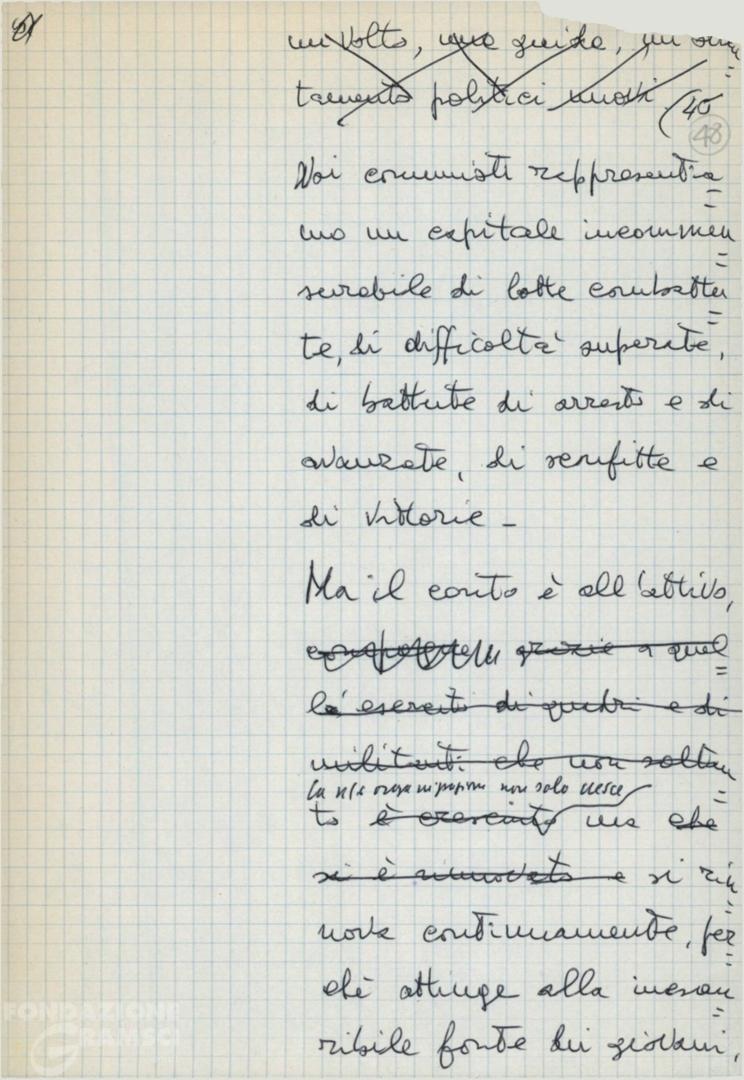 un volto, una guida, un orien=
tamento politici nuovi (40
48
Noi comunisti rappresentia=
mo un capitale incommen=
surabile di lotte combattu=
te, di difficoltà superate,
di battute di arresto e di
avanzate, di sconfitte e
di vittorie –
Ma il conto è all'attivo,
grazie a quel=
lo esercito di quadri e di
militanti che non soltan=
la n/s organizzazione non solo cresce
to è cresciuto ma che
si è rinnovato e si rin=
nova continuamente, per=
chè attinge alla inesau=
ribile fonte dei giovani,
FONDAZIONE
GRAMSCI